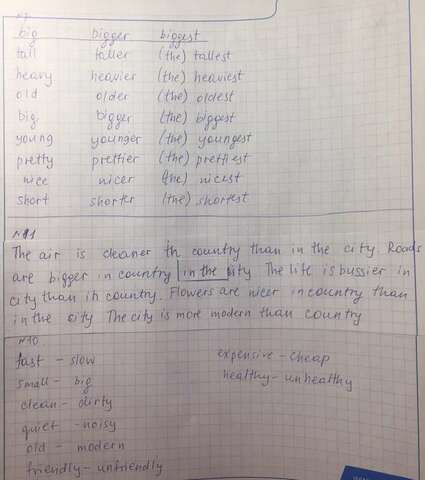 big bigger biggest
tall taller (the) tallest
heavy heavier (the) heaviest
old older (the) oldest
big bigger (the) biggest
young younger (the) youngest
pretty prettier (the) prettiest
nice nicer (the) nicest
short shorter (the) shortest
№11
The air is cleaner th country than in the city. Roads
are bigger in country in the city The life is bussier in
city than in country. Flowers are nicer in country than
in the city The city is more modern than country
№10
fast - slow expensive - cheap
small - big healthy - unhealthy
clean - dirty
quiet - noisy
old - modern
friendly - unfriendly